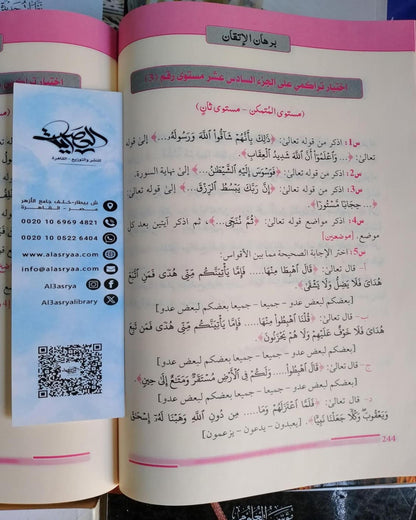 برهان الإتقان
اختبار تراكمي على الجزء السادس عشر مستوى رقم (3)
(مستوى المُتمكن – مستوى ثانٍ)
س1: اذكر من قوله تعالى: ﴿ذَٰلِكَ بِأَنَّهُمْ شَاقُّوا۟ ٱللَّهَ وَرَسُولَهُۥ...﴾ إلى قوله
تعالى: ﴿... وَٱعْلَمُوٓا۟ أَنَّ ٱللَّهَ شَدِيدُ ٱلْعِقَابِ﴾.
س2: اذكر من قوله تعالى: ﴿فَوَسْوَسَ إِلَيْهِ ٱلشَّيْطَٰنُ...﴾ إلى نهاية السورة.
س3: اذكر من قوله تعالى: ﴿إِنَّ رَبَّكَ يَبْسُطُ ٱلرِّزْقَ...﴾ إلى قوله تعالى:
﴿... حِجَابًا مَّسْتُورًا﴾.
س4: اذكر مواضع قوله تعالى: ﴿ثُمَّ نُنَجِّى...﴾، ثم اذكر آيتين بعد كل
موضع. [موضعين]
س5: اختر الإجابة الصحيحة مما بين الأقواس:
أ– قال تعالى: ﴿قَالَ ٱهْبِطَا مِنْهَا..... فَإِمَّا يَأْتِيَنَّكُم مِّنِّى هُدًى فَمَنِ ٱتَّبَعَ
هُدَاىَ فَلَا يَضِلُّ وَلَا يَشْقَىٰ﴾.
[بعضكم لبعض عدو – جميعا – جميعا بعضكم لبعض عدو]
ب– قال تعالى: ﴿قُلْنَا ٱهْبِطُوا۟ مِنْهَا..... فَإِمَّا يَأْتِيَنَّكُم مِّنِّى هُدًى فَمَن تَبِعَ
هُدَاىَ فَلَا خَوْفٌ عَلَيْهِمْ وَلَا هُمْ يَحْزَنُونَ﴾.
[بعضكم لبعض عدو – جميعا – جميعا بعضكم لبعض عدو]
ج– قال تعالى: ﴿قَالَ ٱهْبِطُوا۟..... وَلَكُمْ فِى ٱلْأَرْضِ مُسْتَقَرٌّ وَمَتَٰعٌ إِلَىٰ حِينٍ﴾.
[بعضكم لبعض عدو – جميعا – جميعا بعضكم لبعض عدو]
د– قال تعالى: ﴿فَلَمَّا ٱعْتَزَلَهُمْ وَمَا..... مِن دُونِ ٱللَّهِ وَهَبْنَا لَهُۥٓ إِسْحَٰقَ
وَيَعْقُوبَ وَكُلًّا جَعَلْنَا نَبِيًّا﴾. [يعبدون – يدعون – يزعمون]
244
للنشر والتوزيع - القاهرة
ش بيطار-خلف جامع الأزهر
مصر - القاهرة
0020 10 6969 4821
0020 10 0522 6404
www.alasryaa.com
info@alasryaa.com
Al3asrya
Al3asryalibrary